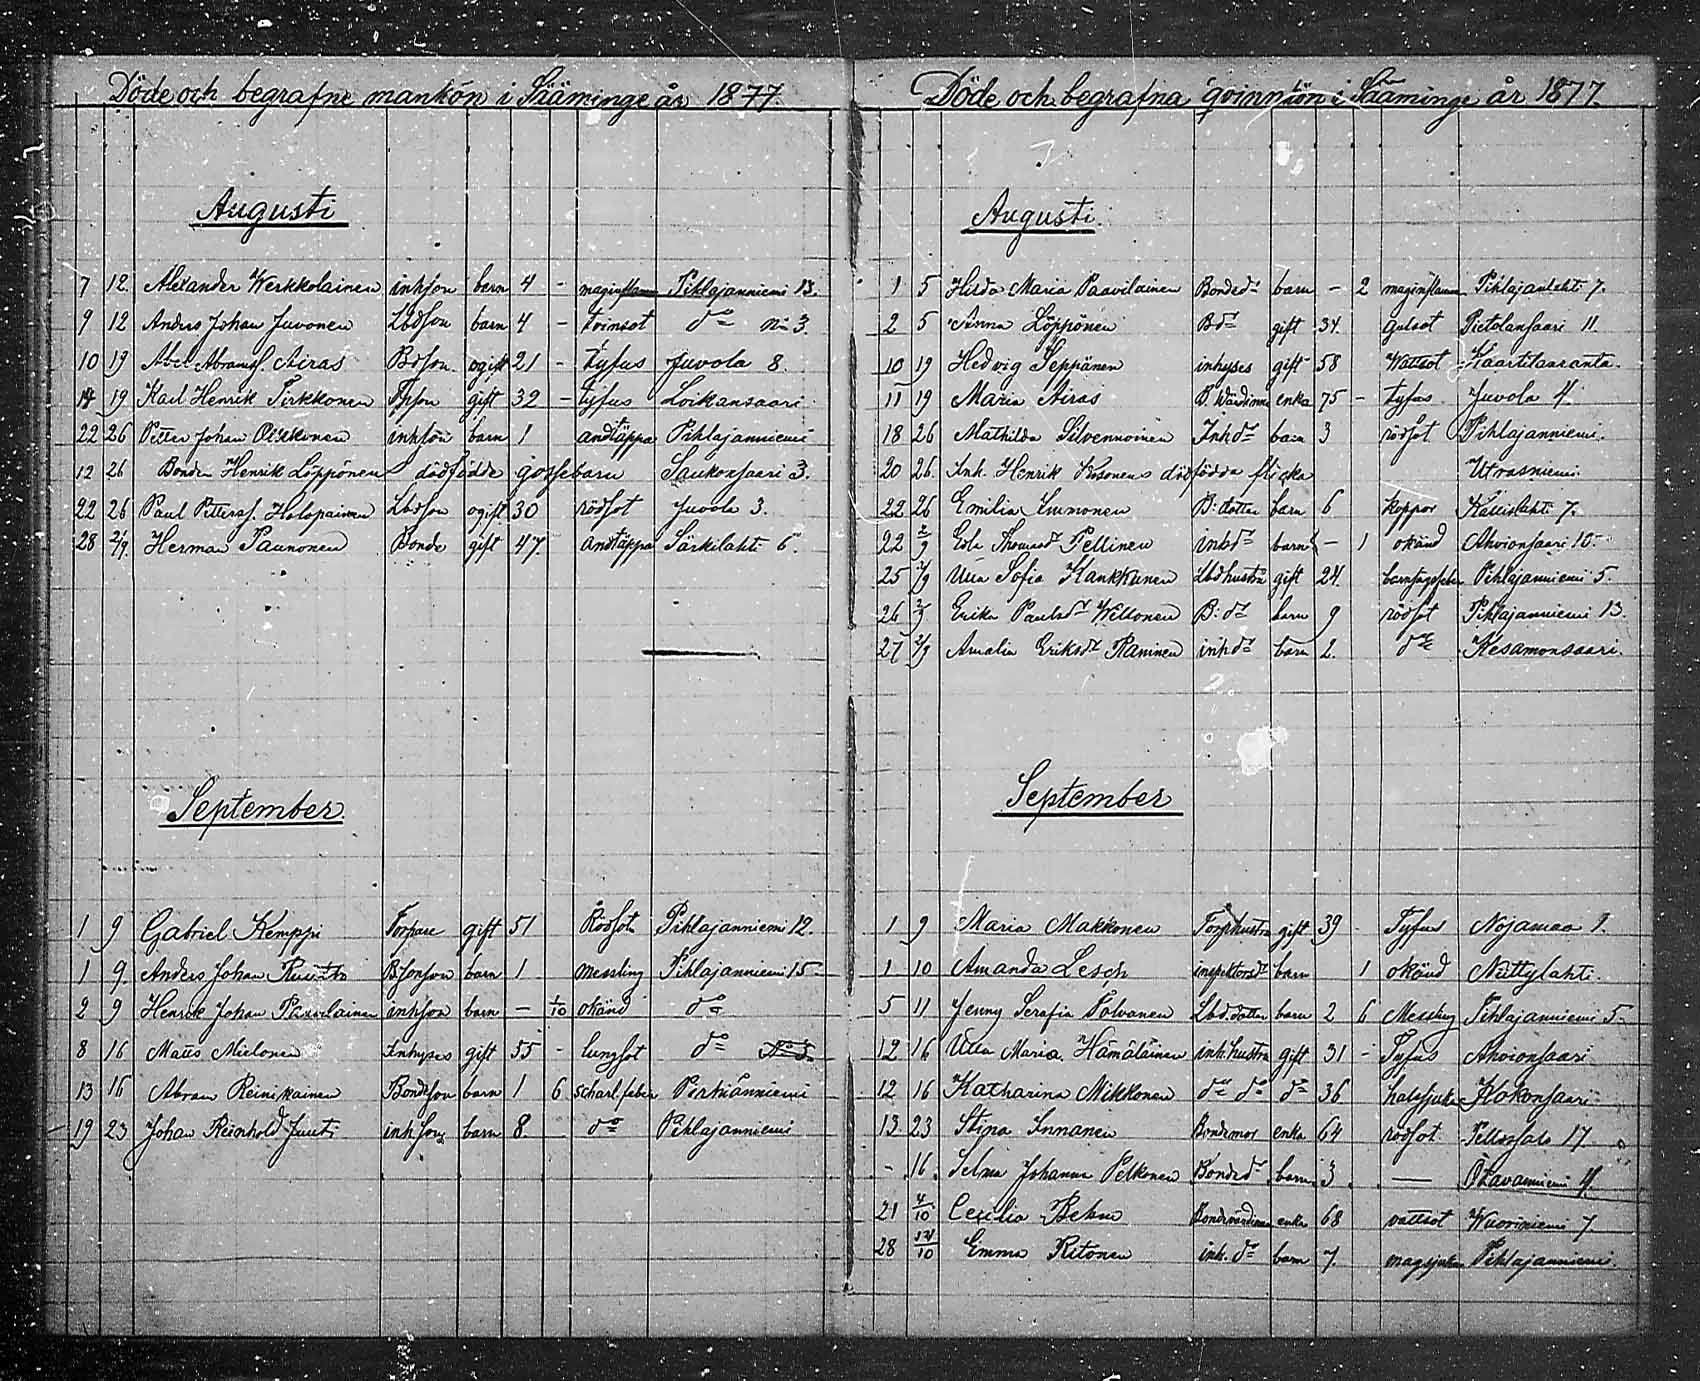 Döde och begrafne mankön i Sääminge år 1877.
Augusti
7 12. Alexander Werkkolainen inhson barn 4 - maginflamm Pihlajanniemi 13.
9 12 Anders Johan Juvonen Lbdson barn 4 - tvinsot do no 3.
10 19 Abel Abramss. Airas Bdson. ogift 21 - tyfus Juvola 8.
14 19 Karl Henrik Tirkkonen Tpson gift 32 - tyfus Loikansaari
22 26 Petter Johan Olikkonen inhson barn 1 andtäppa Pihlajanniemi
12 26 Bonden Henrik Löppönen dödfödde gossebarn Saukonsaari 3.
22 26 Paul Petterss. Holopainen Lbdson ogift 30 rödsot Juvola 3.
28 2/9. Herman Paunonen Bonde gift 47. andtäppa Särkilahti 6.
September
1 9 Gabriel Kemppi Torpare gift 51 Rödsot Pihlajanniemi 12.
1 9. Anders Johan Bsonson barn 1 messling Pihlajanniemi 15
2 9 Henrik Johan Paavilainen inhson barn - 1/10 okänd do
8 16 Mats Mielonen Inhyses gift 55 - lungsot do No 5
13 16 Abram Reinikainen Bondeson barn 1 6 scharl. feber Porkianniemi
19 23 Johan Reinhold Juuti inhson barn 8. do Pihlajanniemi
Döde och begrafna qvinnkön i Sääminge år 1877.
Augusti.
1 5 Hilda Maria Paavilainen Bonded:r barn - 2 maginflamm Pihlajanlahti 7.
2 5 Anna Löppönen Bdr gift 34. gulsot Pietolansaari 11.
10 19 Hedvig Seppänen inhyses gift 58 Wattsot Kaartilanranta.
11 19 Maria Airas B. Wärdinna enka 75 - tyfus Juvola 4.
18 26 Mathilda Silvennoinen Inh dr barn 3 rödsot Pihlajanniemi.
20 26. Inh. Henrik Kosonens dödfödda flicka Utrasniemi
22 26 Emilia Immonen B: dotter barn 6 koppor Kallislahti 7.
22 2/9 Eva Thomasdr Pellinen inhdr barn - 1 okänd Ahvionsaari 10
25 2/9 Ulla Sofia Kankkunen Lbdhustru gift 24. barnsängsfeber Pihlajanniemi 5.
26 2/9 Erika Paulsdr Wiltonen B: dr barn 9 rödsot Pihlajanniemi 13
27 2/9 Amalia Eriksdr Raninen inhdr barn 2. do Kesamonsaari.
September
1 9 Maria Makkonen Torphustru gift 39 Tyfus Nojamaa 1.
1 10 Amanda Lesch inspektorsdr barn 1 okänd Nuttylahti.
5 11 Jenny Serafia Tolvanen Lbd. dotter barn 2 6 Messling Pihlajanniemi 5
12 16 Ulla Maria Hämäläinen inh. hustru gift 31 - Tyfus Ahvionsaari
12 16 Katharina Mikkonen do do do 36 halssjuka Hokonsaari
13. 23 Stina Innanen Bondemor enka 64 rödsot Pellossalo 17
- 16. Selma Johanna Pelkonen Bondedr barn 3 — Otavanniemi 4.
21 4/10 Cecilia Behm Bondevärdinna enka 68 vattsot Wuoriniemi 7.
28 14/10 Emma Ritonen inh. dr barn 7. magsjukan Pihlajanniemi.